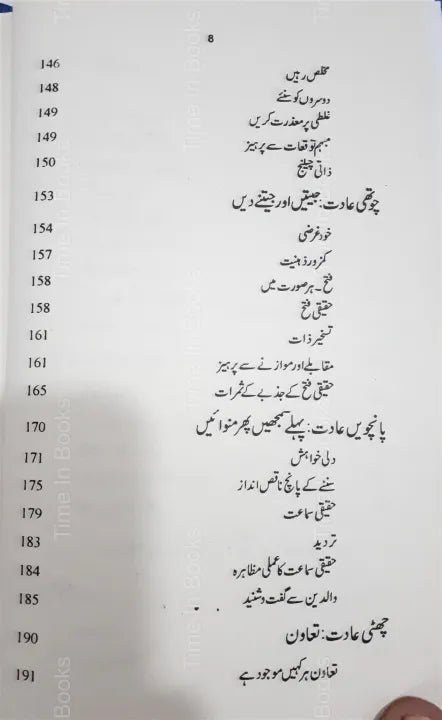 8
مخلص رہیں 146
دوسروں کو سنئے 148
غلطی پر معذرت کریں 149
مبہم توقعات سے پرہیز 149
ذاتی چیلنج 150
چوتھی عادت: جیتیں اور جیتنے دیں 153
خود غرضی 154
کمزور ذہنیت 157
فتح۔ ہر صورت میں 158
حقیقی فتح 158
تسخیر ذات 161
مقابلے اور موازنے سے پرہیز 161
حقیقی فتح کے جذبے کے ثمرات 165
پانچویں عادت: پہلے سمجھیں پھر منوائیں 170
دلی خواہش 171
سننے کے پانچ ناقص انداز 175
حقیقی سماعت 179
تردید 183
حقیقی سماعت کا عملی مظاہرہ 184
والدین سے گفت و شنید 185
چھٹی عادت: تعاون 190
تعاون ہر کہیں موجود ہے 191
Time In Books